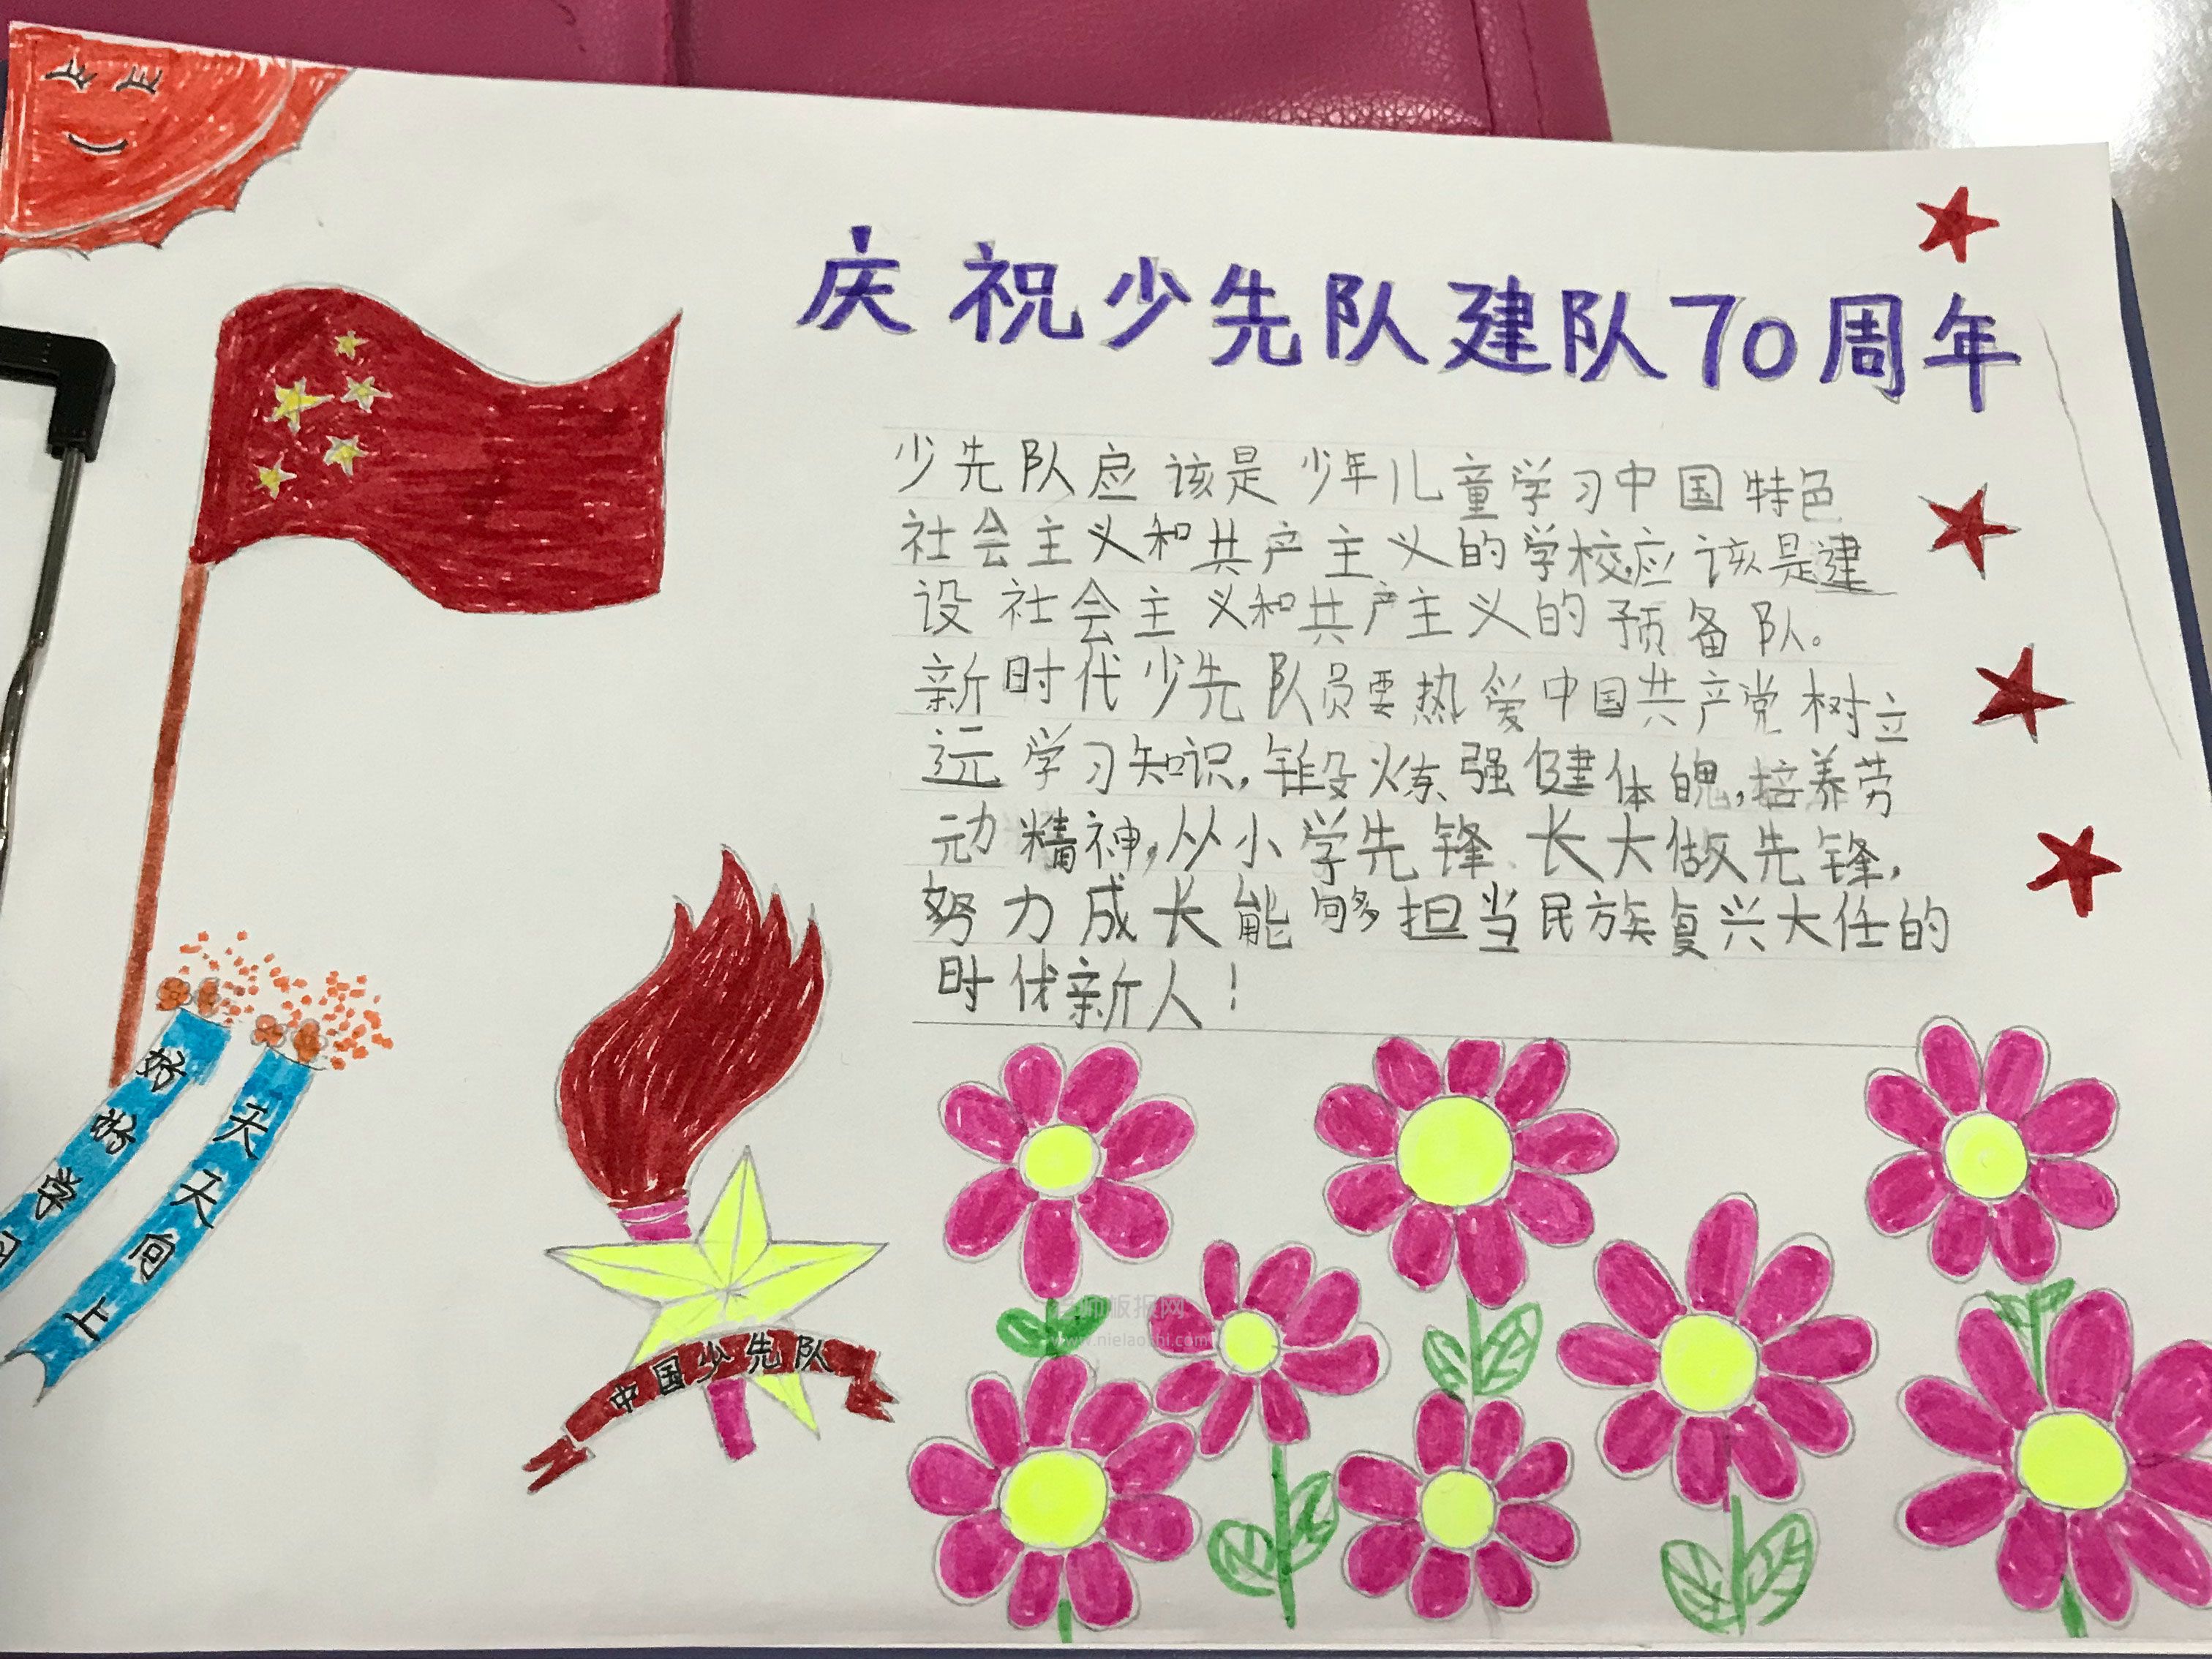 庆祝少先队建队70周年
少先队应该是少年儿童学习中国特色
社会主义和共产主义的学校,应该是建
设社会主义和共产主义的预备队。
新时代少先队员要热爱中国共产党树立
远学习知识,锻炼强健体魄,培养劳
动精神,从小学先锋、长大做先锋,
努力成长能够担当民族复兴大任的
时代新人!
好好学习
天天向上
中国少先队
老师板报网
www.nielaoshi.com